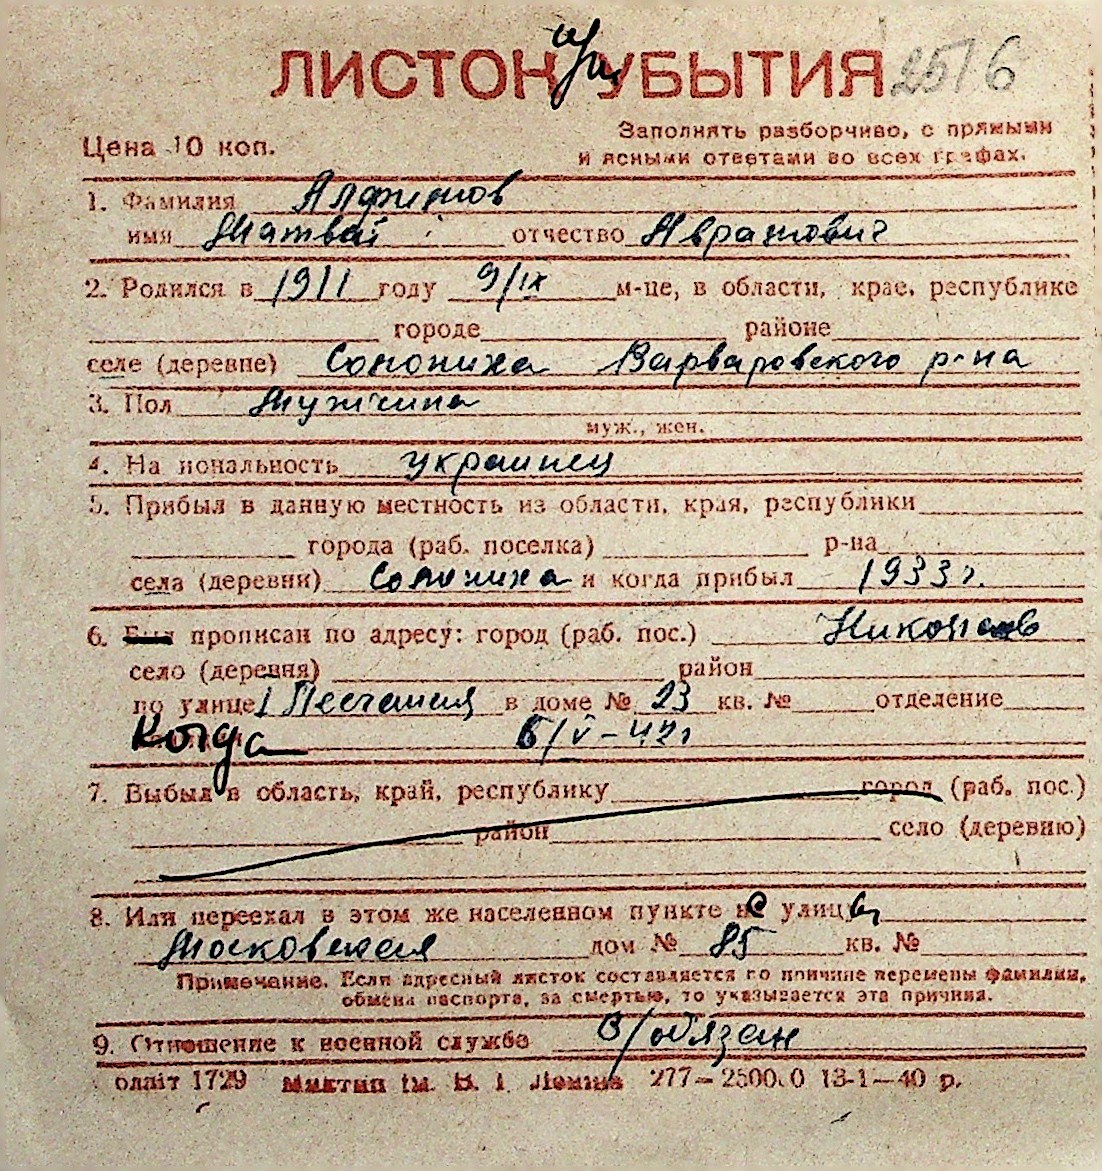 ЛИСТОК УБЫТИЯ 2516
при
Цена 10 коп.
Заполнять разборчиво, с прямыми
и ясными ответами во всех графах.
1. Фамилия Алфимов
имя Матвей отчество Аврамович
2. Родился в 1911 году 9/IX м-це, в области, крае, республике
городе районе
селе (деревне) Солониха Варваровского р-на
3. Пол Мужчина
муж., жен.
4. На иональность украинец
5. Прибыл в данную местность из области, края, республики
города (раб. поселка) р-на
села (деревни) Солониха и когда прибыл 1933 г.
6. Был прописан по адресу: город (раб. пос.) Николаев
село (деревня) район
по улице 1 Песчаная в доме № 23 кв. № отделение
Когда 6/V-42г
7. Выбыл в область, край, республику город (раб. пос.)
район село (деревню)
8. Или переехал в этом же населенном пункте с улицы
Московская дом № 85 кв. №
Примечание. Если адресный листок составляется по причине перемены фамилии,
обмена паспорта, за смертью, то указывается эта причина.
9. Отношение к военной службе В/обязан
олліт 1729 ім. В. І. Леніна 277— 13-1—40 р.